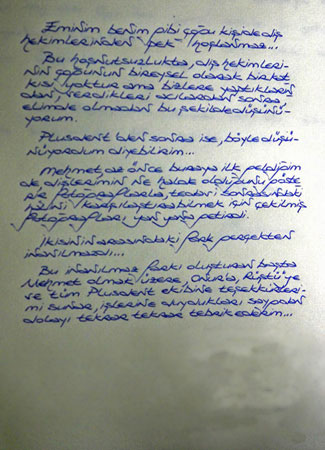 Eminim benim gibi çoğu kişide diş
hekimlerinden pek hoşlanmaz...
Bu hoşnutsuzlukta, diş hekimleri-
nin çoğunun bireysel olarak bir kat
kısı yoktur ama bizlere yaptıkları
dan verdikleri acılardan sonra
elimde olmadan bu şekilde düşünü-
yorum.
Plusdent'den sonra ise, böyle düşü-
nüyordum diyebilirim...
Mehmet, az önce buraya ilk geldiğim
de, dişlerimin ne halde olduğunu göste
rir fotoğraflarla, tedavi sonrasındaki
halini karşılaştırabilmek için çekilmiş
fotoğrafları yan yana getirdi.
İkisinin arasındaki fark gerçekten
inanılmazdı...
Bu inanılmaz farkı oluşturan başta
Mehmet olmak üzere, Onur'a, Rüştü'ye
ve tüm Plusdent ekibine teşekkürleri-
mi sunar, işlerine duydukları saygıdan
dolayı tekrar tekrar tebrik ederim...